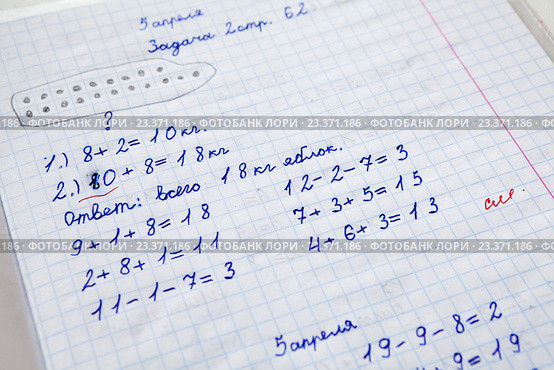 5 апреля
Задача 2 стр. 62
?
1.) 8+2=10кг.
2.) 10+8=18кг
Ответ: всего 18кг яблок.
9+1+8=18
2+8+1=11
11-1-7=3
12-2-7=3
7+3+5=15
4+6+3=13
см.
5 апреля
19-9-8=2
+9=19
186 · ФОТОБАНК ЛОРИ · 23.371.186 · ФОТОБАНК ЛОРИ · 23.371.186 · ФОТОБАНК ЛОРИ · 23.371.186 · ФОТОБАНК
186 · ФОТОБАНК ЛОРИ · 23.371.186 · ФОТОБАНК ЛОРИ · 23.371.186 · ФОТОБАНК ЛОРИ · 23.371.186 · ФОТОБАНК